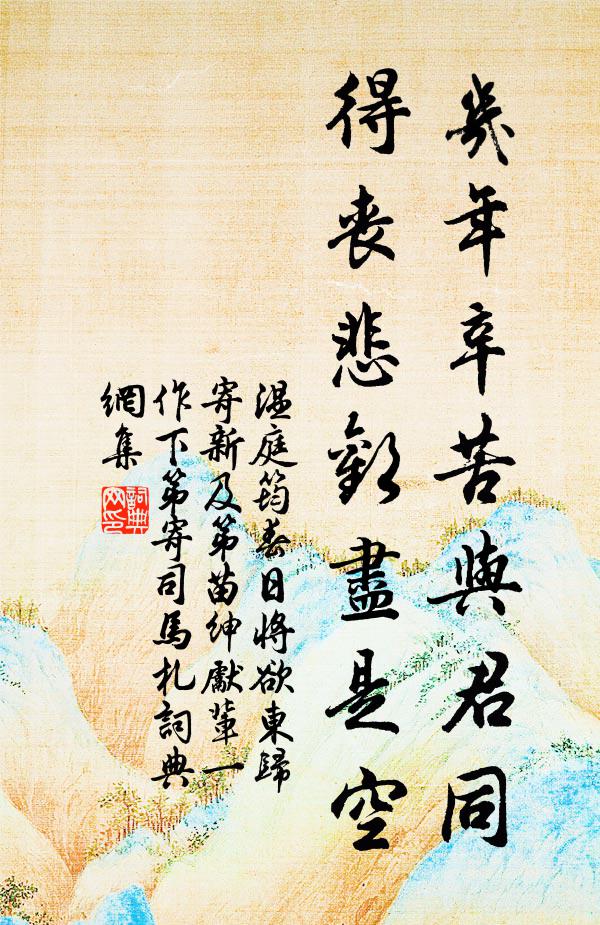 幾年辛苦與君同
得喪悲歡盡是空
溫庭筠春日將欲東歸
寄新及第苗紳獻輩一
作下第寄司馬札詞典
網集
詞典
網印